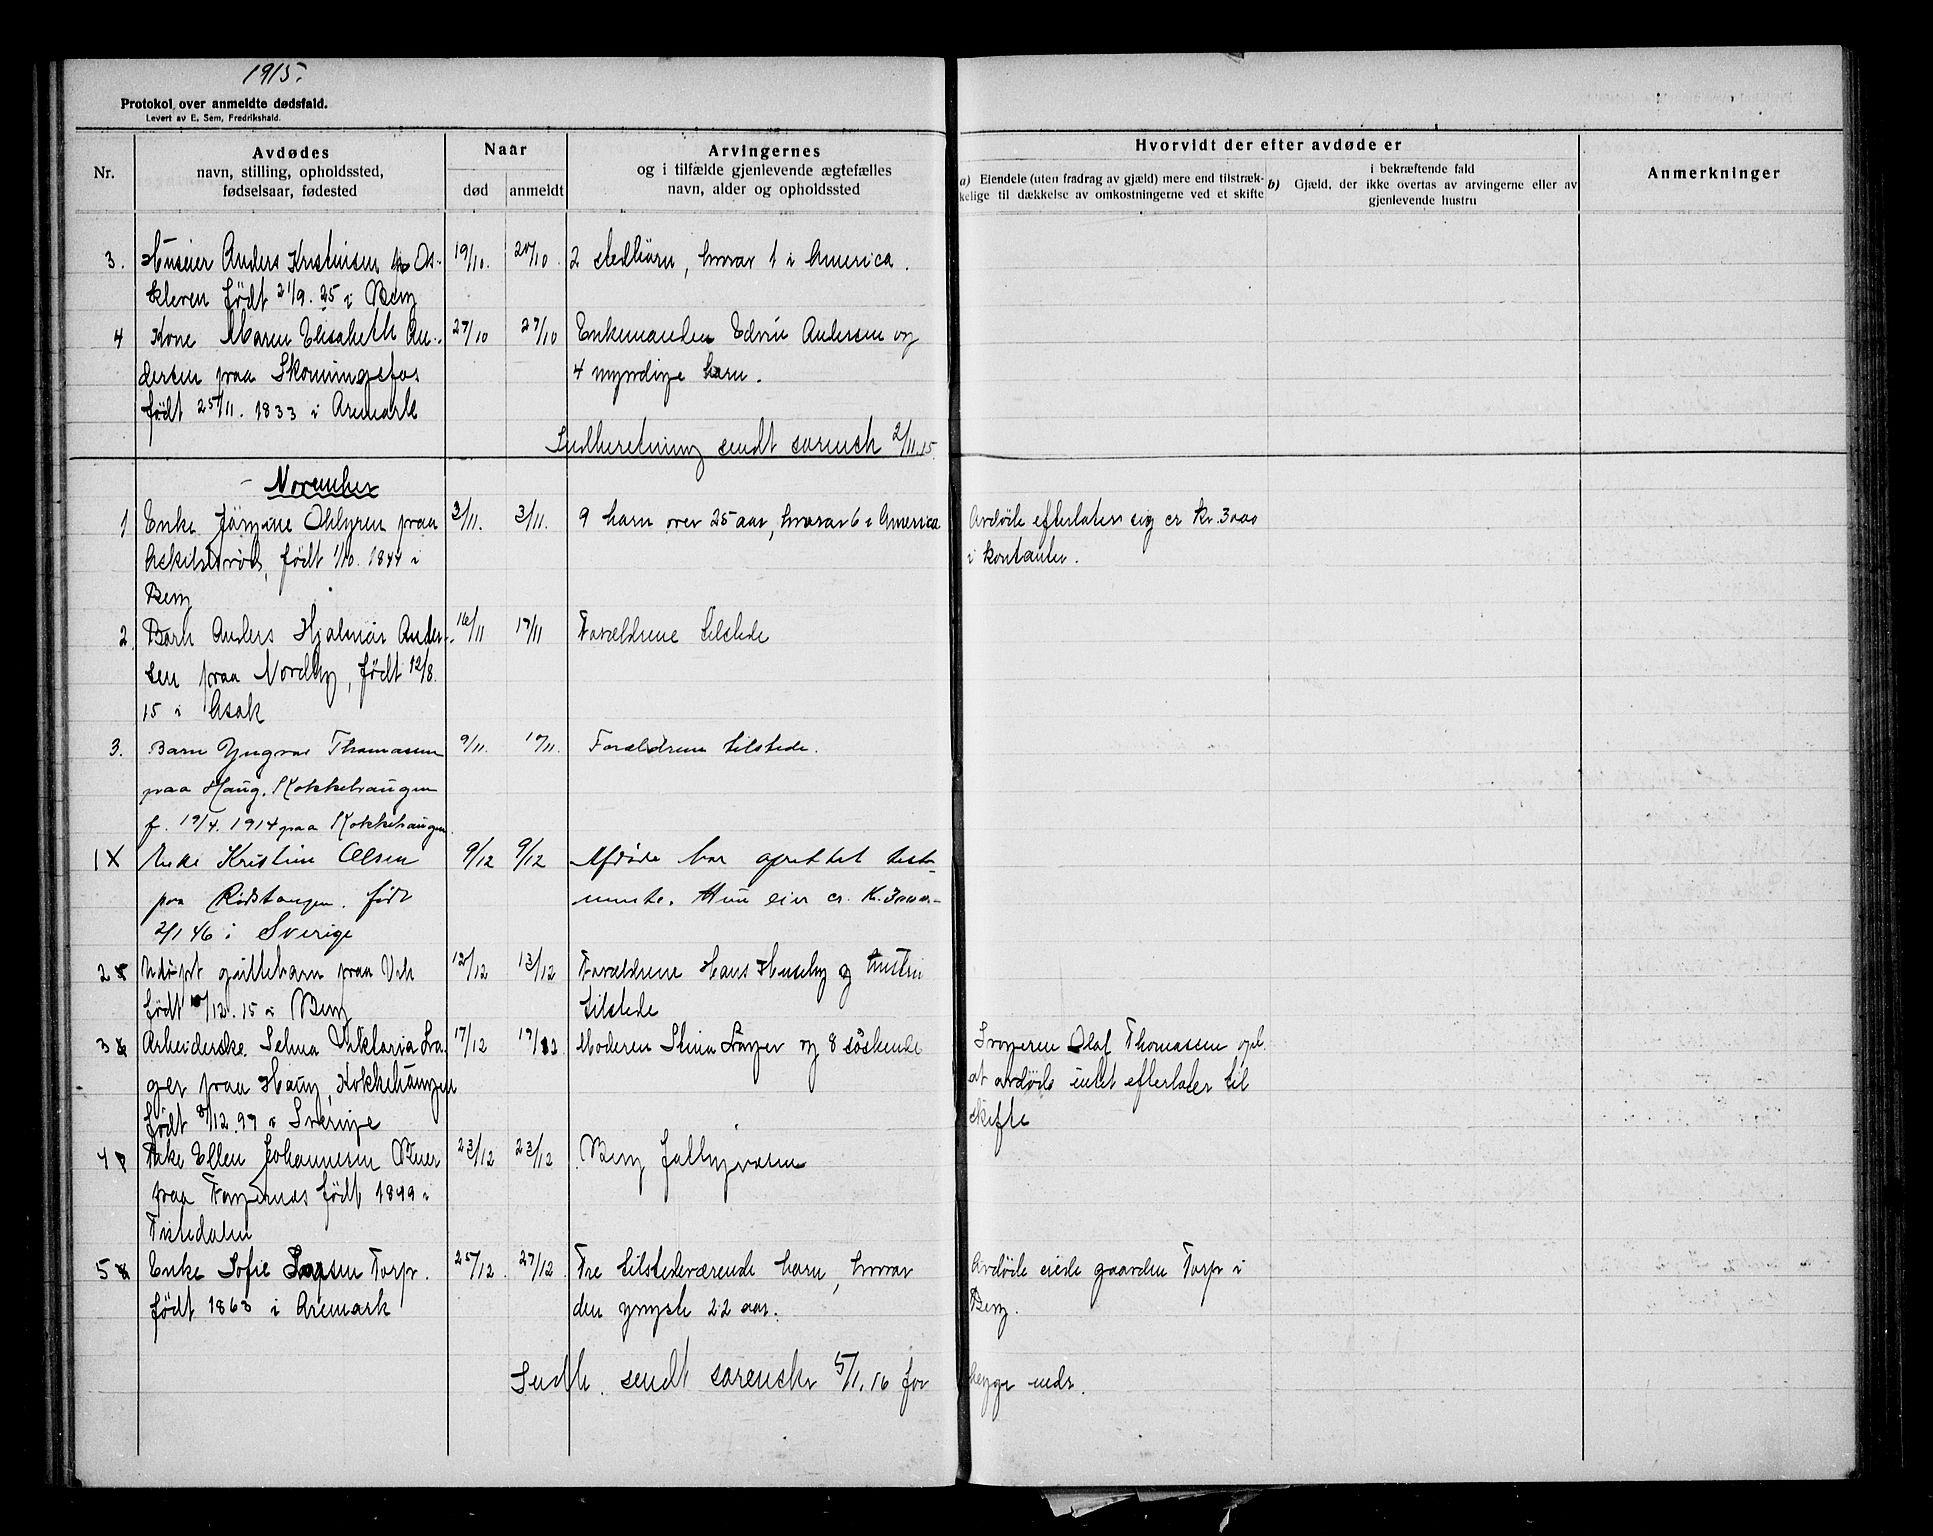 1915.
Protokol over anmeldte dødsfald.
Levert av E. Sem, Fredrikshald.
Nr.
Avdødes
navn, stilling, opholdssted,
fødselsaar, fødested
Naar
død
anmeldt
Arvingernes
og i tilfælde gjenlevende ægtefælles
navn, alder og opholdssted
Hvorvidt der efter avdøde er
a) Eiendele (uten fradrag av gjæld) mere end tilstræk-
kelige til dækkelse av omkostningerne ved et skifte
i bekræftende fald
b) Gjæld, der ikke overtas av arvingerne eller av
gjenlevende hustru
Anmerkninger
3. Huseier Anders Kristiansen Os- 19/10. 20/10. 2 stedbørn, hvorav 1 i America.
kleven født 21/9. 25 i Berg
4 Kone Maren Elisabeth An- 27/10 27/10 Enkemanden Edvin Andersen og
dersen paa Skonningsfos 4 myndige barn.
født 25/11. 1833 i Aremark
Indberetning sendt sorensk 2/11.15.
November
1 Enke Jørgine Ohlgren paa 2/11. 3/11. 9 barn over 25 aar, hvorav 6 i America Avdøde efterlater sig cr kr. 3000
Askilsrød, født 1/10. 1844 i i kontanter.
Berg
2 Barn Anders Hjalmar Ander- 16/11 17/11 Forældrene tilstede
sen paa Nordby, født 12/8.
15 i Asak
3. Barn Yngvar Thomasen 9/11. 10/11. Forældrene tilstede.
paa Haug, Kokkehaugen
f. 19/4. 1914 paa Kokkehaugen.
1X Enke Kristine Olsen 9/12 9/12 Afdøde har oprettet testa-
paa Rødstangen. født mente. Hun eier cr. Kr. 3000.-
2/1 46 i Sverige
2 Udøpt guttebarn paa Vek 12/12 13/12 Forældrene Hans Huseby og hustru
født 10/12. 15 i Berg tilstede
3 Arbeiderske Selma Viktoria Lra- 17/12 19/12 Moderen Stina Lrager og 8 søskende Svogeren Olaf Thomassen opl.
ger paa Haug, Kokkehaugen at avdøde intet efterlater til
født 8/12.97 i Sverige skifte
4 Enke Ellen Johannesen 23/12 23/12 Berg fattigvæsen
paa Torpernes født 1849 i
Tistedalen
5 Enke Sofie Larsen Torp. 25/12. 27/12. Tre tilstedeværende barn, hvorav Avdøde eiede gaarden Torp i
født 1863 i Aremark den yngste 22 aar. Berg.
Indb. sendt sorenskr 5/1. 16 for begge mdr.